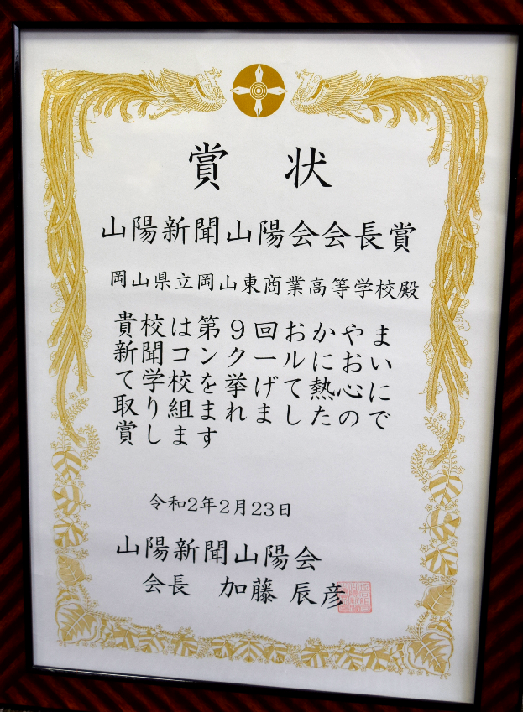 賞状
山陽新聞山陽会会長賞
岡山県立岡山東商業高等学校殿
貴校は第9回おかやま
新聞コンクールにおい
て学校を挙げて熱心に
取り組まれましたので
賞します
令和2年2月23日
山陽新聞山陽会
会長 加藤辰彦